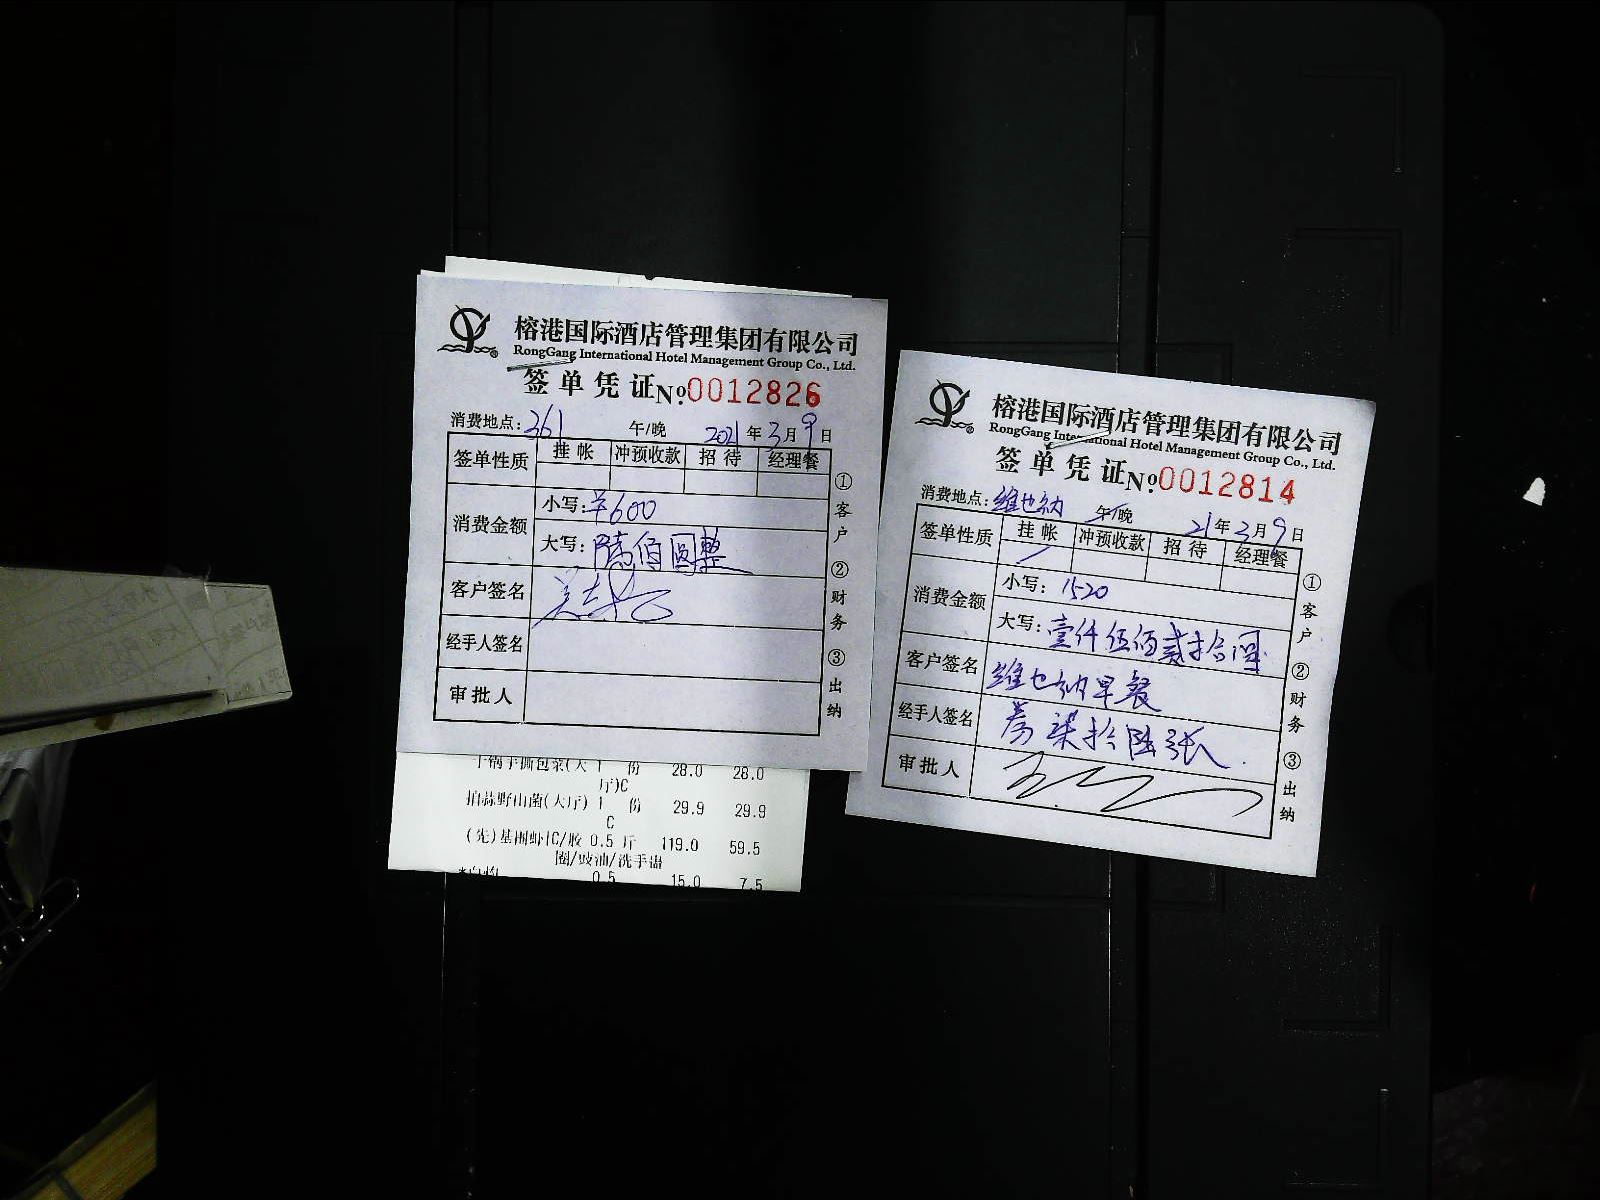 榕港国际酒店管理集团有限公司
RongGang International Hotel Management Group Co., Ltd.
签单凭证 №0012826
消费地点: 361 午/晚 2021年3月9日
签单性质 挂帐 冲预收款 招待 经理餐
消费金额 小写: ¥600
大写: 陆佰圆整
客户签名
经手人签名
审批人
①客户 ②财务 ③出纳
干锅手撕包菜(大 1 份 28.0 28.0
厅)C
拍蒜野山菌(大厅) 1 份 29.9 29.9
C
(先)基围虾IC/胶 0.5 斤 119.0 59.5
圈/豉油/洗手盅
0.5 15.0 7.5
榕港国际酒店管理集团有限公司
RongGang International Hotel Management Group Co., Ltd.
签单凭证 №0012814
消费地点: 维也纳 午/晚 21年3月9日
签单性质 挂帐 冲预收款 招待 经理餐
消费金额 小写: 1520
大写: 壹仟伍佰贰拾圆
客户签名 维也纳早餐
经手人签名 券柒拾陆张
审批人
①客户 ②财务 ③出纳